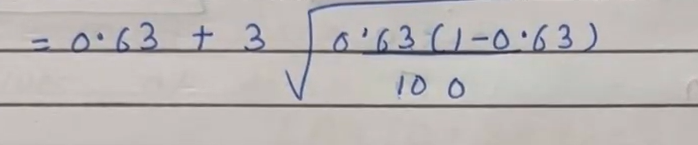 = 0.63 + 3 √(0.63(1-0.63)/100)